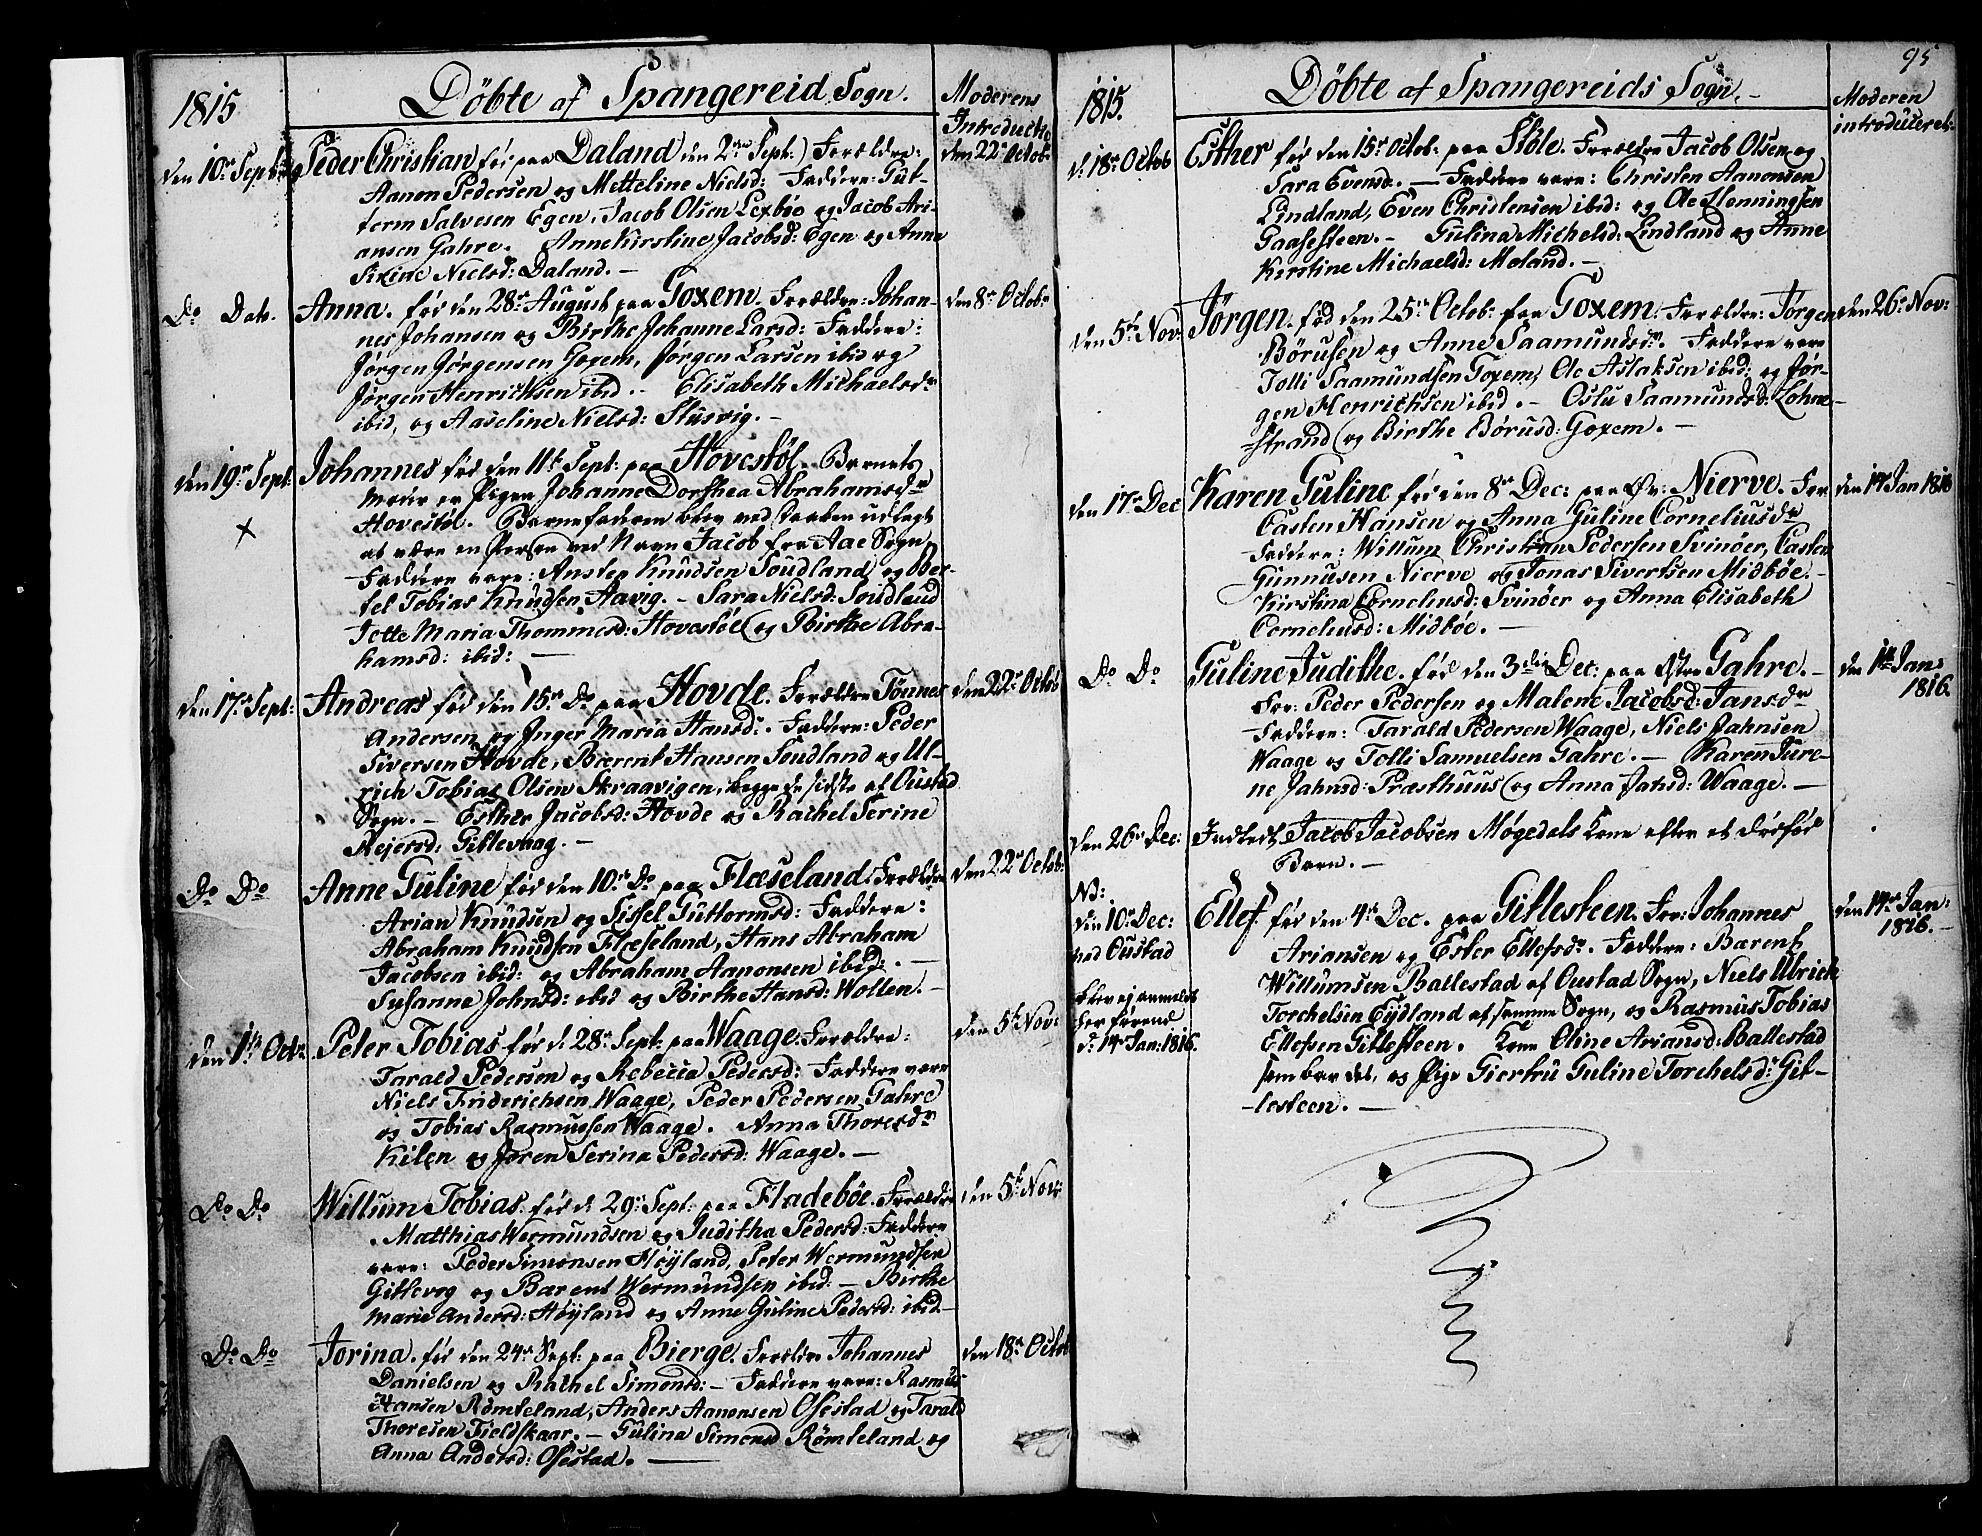 1815.
Döbte af Spangereid Sogn.
Moderens
Introductio
den 10de Sept: Peder Christian fød paa Daland den 2den Sept:) Forældre: den 22de Octob:
Aanon Pedersen og Metteline Nielsd: Faddere: Gut-
term Salvesen Egen, Jacob Olsen Lexböe og Jacob Ari-
ansen Gahre. Anne Kirstine Jacobsd: Egen og Anne
Sixine Nielsd: Daland. —
Do Dato. Anna. fød den 28de August paa Goxem. Forældre: Johan- den 8de Octobr
nes Johansen og Birthe Johanne Larsd: Faddere:
Jørgen Jørgensen Goxem, Jørgen Larsen ibid og
Jørgen Henrichsen ibid. — Elisabeth Michaelsdr
ibid, og Aaseline Nielsd: Slusvig. —
den 19de Sept: Johannes fød den 11te Sept: paa Hovestøl. Barnets
Moder er Pigen Johanne Dorthea Abrahamsdr
Hovestøl. Barnefaderen blev ved Daaben udlagt
at være en Person ved Navn Jacob fra Aae Sogn,
Faddere vare: Ansten Knudsen Soudland og Ber-
tel Tobias Knudsen Aavig. — Sara Nielsd: Soudland
Jette Maria Thommesd: Hovestøl og Birthe Abra-
hamsd: ibid: —
den 17de Sept: Andreas fød den 15de Do paa Hovde. Forældre Tönnes den 22de Octob
Andersen og Inger Maria Hansd:. Faddere: Peder
Siversen Hovde, Bærent Hansen Soudland og Ul-
rich Tobias Olsen Skraavigen, begge de sidste af Oustad
Sogn. — Esther Jacobsd: Hovde og Rachel Serine
Rejersd: Gittevaag. —
Do Do Anne Guline fød den 10de Do paa Flæseland. Forældre den 22de Octob:
Arian Knudsen og Sissel Guttormsd: Faddere:
Abraham Knudsen Flæseland, Hans Abraham
Jacobsen ibid: og Abraham Aanonsen ibid:. —
Susanne Johnsd: ibid og Birthe Hansd: Wollen. —
den 1ste Octr Peter Tobias fød d 28de Sept: paa Waage. Forældre: den 5te Nov:
Tarald Pedersen og Rebecca Pedersd: Faddere vare
Niels Friderichsen Waage, Peder Pedersen Gahre
og Tobias Rasmussen Waage. Anna Thoresdr
Kilen og Joren Serina Pedersd: Waage. —
Do Do Willum Tobias. fød d 29de Sept: paa Fladebøe. Forældre den 5te Nov:
Matthias Wermundsen og Juditha Pedersd: Faddere
vare: Peder Simonsen Höyland, Peter Wermundsen
Gittevog og Barent Wermundsen ibid: — Birthe
Marie Andersd: Höyland og Anne Guline Pedersd: ibid —
Do Do Jorina. fød den 24de Sept: paa Bierge. Forældre Johannes den 18de Octob
Danielsen og Rachel Simonsd: — Faddere vare: Rasmus
Hansen Römteland, Anders Aanonsen Osestad og Tarald
Thoresen Fieldskaar. — Gulina Simonsd Römteland og
Anna Andersd: Osestad. —
95
1815.
Döbte af Spangereids Sogn. —
Moderen
introduceret
d: 18de Octob Esther fød den 15de Octob. paa Stöle. Forældre Jacob Olsen og
Sara Evensd. — Faddere vare: Christen Aanonsen
Lindland, Even Christensen ibid: og Ole Henningsen
Gaasesteen. — Gulina Michelsd: Lindland og Anne
Kirstine Michaelsd: Moland. —
den 5te Nov: Jörgen. fød den 25de Octob. paa Goxem. Forældre: Jörgen den 26de Nov:
Börusen og Anne Saamundsdr. Faddere vare
Tolli Saamundsen Goxem, Ole Aslaksen ibid: og Jör-
gen Henrichsen ibid. — Oslu Saamundsd: Lohne-
strand og Birthe Börusd: Goxem. —
den 17de Dec Karen Guline fød den 8de Dec: paa Øv: Nierve. For den 17 Jan 1816
Casten Hansen og Anna Guline Corneliusdr
Faddere: Willum Christian Pedersen Svinöer, Casten
Gunnusen Nierve og Jonas Sivertsen Midböe. —
Kirstina Corneliusd: Svinöer og Anna Elisabeth
Corneliusd: Midböe. —
Do Do Guline Judithe. fød den 3die Dec: paa Østre Gahre. — den 1ste Jan:
1816.
For: Peder Pedersen og Malene Jacobsd: Jansdr
Faddere: Tarald Pedersen Waage, Niels Jahnsen
Waage og Tolli Samuelsen Gahre. — Karen Jure-
ne Jahnsd: Præsthuus og Anna Jahsd: Waage. —
den 26de Dec: Indledt Jacob Jacobsen Møgedals Kone efter et dødfød
Barn. —
NB:
den 10de Dec:
ved Oustad
blev ej anmeldt
her førend
d: 14de Jan: 1816.
Ellef fød den 4de Dec. paa Gittesteen. For: Johannes den 14de Jan:
1816. —
Ariansen og Ester Ellefsdr. Faddere: Bærent
Willumsen Ballestad af Oustad Sogn, Niels Ulrich
Torchelsen Eydland af samme Sogn, og Rasmus Tobias
Ellefsen Gittesteen. Kone Oline Ariansd: Ballestad
som bar det, og Pige Giertru Guline Torchelsd: Git-
testeen. —